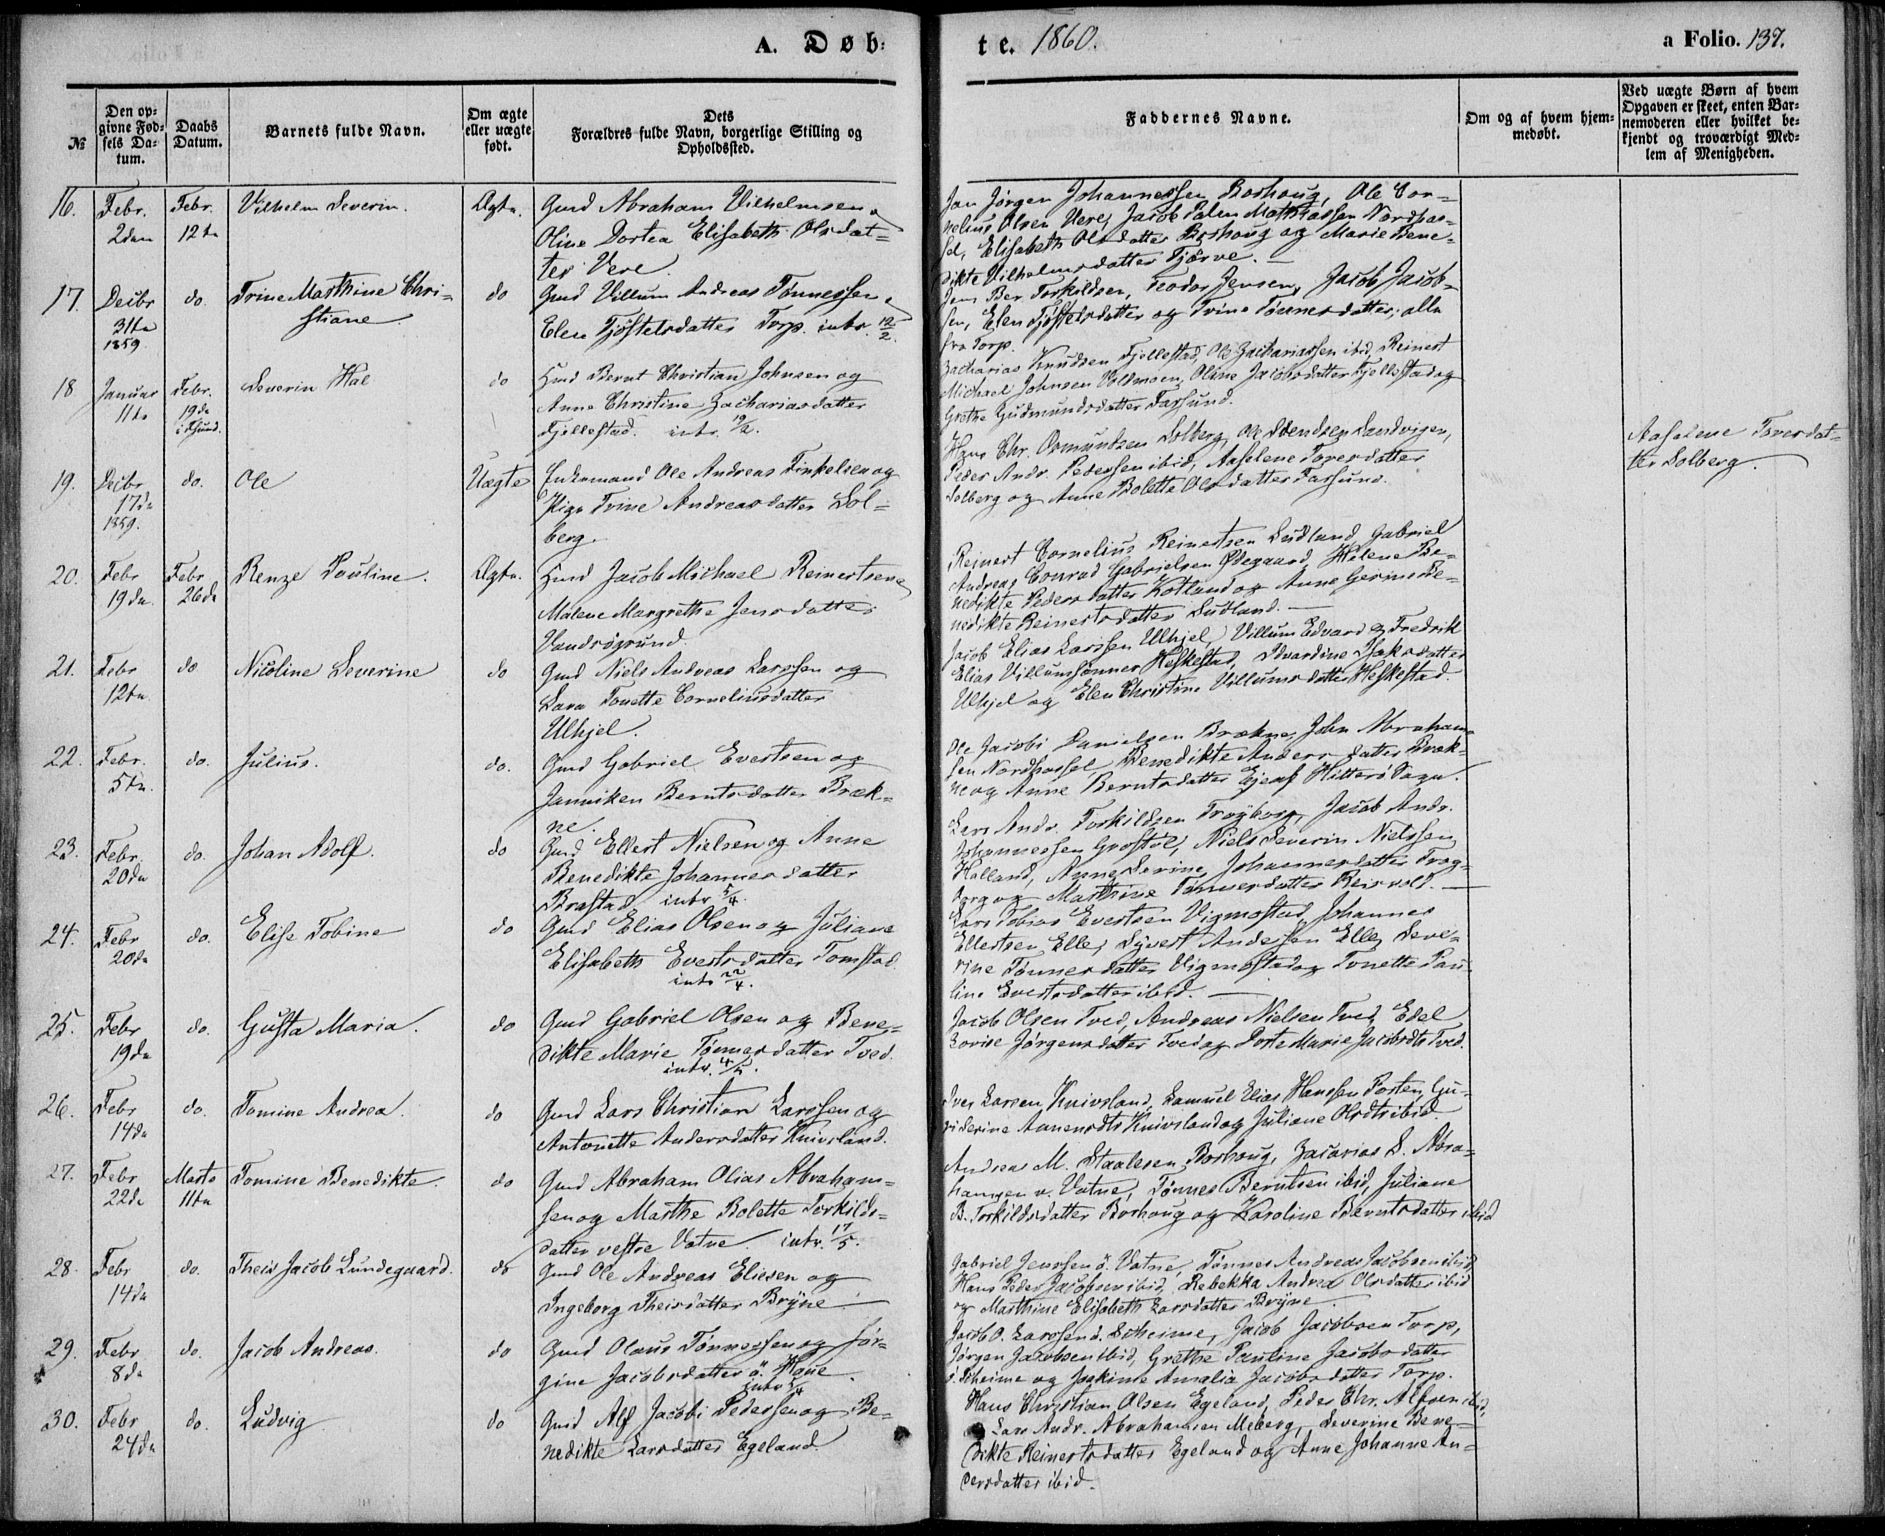 A. Døb:
te. 1860.
a Folio. 137.
№
Den op-
givne Fød-
sels Da-
tum.
Daabs
Datum.
Barnets fulde Navn.
Om ægte
eller uægte
født.
Dets
Forældres fulde Navn, borgerlige Stilling og
Opholdssted.
Faddernes Navne.
Om og af hvem hjem-
medøbt.
Ved uægte Børn af hvem
Opgaven er skeet, enten Bar-
nemoderen eller hvilket be-
kjendt og troværdigt Med-
lem af Menigheden.
16. Febr. Febr. Vilhelm Severin. Ægte. Gmd Abraham Vilhelmsen
2den 12te Oline Dortea Elisabeth Olsdat-
ter Vere.
Jan Jørgen Johannessen Borhoug, Ole Cor-
nelius Olsen Vere, Jacob Palm Mathiassen Nordhas-
sel, Elisabeth Olsdatter Borhoug og Marie Bene-
dikte Vilhelmsdatter Tjørve.
17. Decbr do. Trine Marthine Chri- do Gmd Villum Andreas Tønnessen
31te stiane Elen Tjøstelsdatter Torp. intr. 12/2.
1859
Jens Ber. Torkildsen, Teodor Jensen, Jacob Jacob-
sen, Elen Tjøstelsdatter og Trine Tønnesdatter, alle
fra Torp.
18 Januar Febr. Severin Hal do Hmd Bernt Christian Johnsen og
11te 19de Anne Christine Zachariasdatter
i Fsund. Fjellestad. intr. 19/2.
Zacharias Knudsen Fjellestad, Ole Zachariassen ibid, Reinert
Michael Johnsen Vollmoen, Oline Jacobsdatter Fjellestad og
Grethe Gudmundsdatter Farsund.
19. Decbr do. Ole Uægte Enkemand Ole Andreas Tinkelsen og
17de Pige Trine Andreasdatter Sol-
1859. berg.
Hans Chr. Osmundsen Solberg, Ole Svendsen Sandvigen,
Peder Andr. Pedersen ibid, Aaselene Toresdatter
Solberg og Anne Bolette Olsdatter Farsund.
Aaselene Toresdat-
ter Solberg.
20. Febr Febr Renze Pauline. Ægte. Hmd Jacob Michael Reinertsen
19de 26de Malene Margrethe Jensdatter
Vandrsgrund
Reinert Cornelius Reinertsen Sudland, Gabriel
Andreas Conrad Gabrielsen Ødegaard, Helene Be-
nedikte Pedersdatter Kotland og Anne Gerine Be-
nedikte Reinertsdatter Sudland.
21. Febr do Nicoline Severine do Gmd Niels Andreas Larssen og
12te Lava Tonette Corneliusdatter
Ulhjel.
Jacob Elias Larssen Ulhjel, Villum Edvard og Fredrik
Elias Villumsønner Heskestad, Edvardine Isaksdatter
Ulhjel og Elen Christine Villumsdatter Heskestad.
22. Febr. do. Julius. do. Gmd Gabriel Evertsen og
5te Janniken Berntsdatter Bræk-
ne.
Ole Jacobi Danielsen Brækne, John Abraham-
sen Nordhassel, Benedikte Andersdatter Bræk-
ne og Anne Berntsdatter Ejeas Hitterø Sogn.
23. Febr. do. Johan Adolf. do Gmd Ellert Nielsen og Anne
20de Benedikte Johannesdatter
Brastad intr 5/4.
Lars Andr. Torkildsen Trøgborg, Jacob Andr.
Johannessen Grostøl, Niels Severin Nielssen
Halland, Anne Serine Johannesdatter Trøg-
borg og Marthine Tønnesdatter Reisvold.
24. Febr do. Elise Tobine do Gmd Elias Olsen og Juliane
20de Elisabeth Evertsdatter Tomstad.
intr 22/4.
Lars Tobias Evertsen Vigmostad, Johannes
Ellertsen Elle, Syvert Andersen Elle, Seve-
rine Tønnesdatter Vigmostad og Tonette Pau-
line Evertsdatter ibid.
25. Febr do. Gusta Maria. do Gmd Gabriel Olsen og Bene-
19de dikte Marie Tønnesdatter Tved.
intr. 4/5.
Jacob Olsen Tved, Andreas Nielsen Tved, Edel
Lovise Jørgensdatter Tved og Dorte Marie Jacobsdtr Tved.
26. Febr do. Tomine Andrea. do Gmd Lars Christian Larssen og
14de Antonette Andersdatter Knivsland.
Iver Larsen Knivsland, Samuel Elias Hanssen Josten, Gu-
riserine Aanensdtr Knivsland og Juliane Olsdtr ibid
27. Febr Marts Tomine Benedikte. do Gmd Abraham Olias Abraham-
22de 11te sen og Marthe Bolette Torkilds-
datter vestre Vatne. intr. 17/5.
Andreas M. Staalesen Borhoug, Zacarias S. Abra-
hamsen v. Vatne, Tønnes Berntsen ibid, Juliane
B. Torkildsdatter Borhoug og Karoline Berntsdatter ibid
28. Febr do. Theis Jacob Lundegaard. do Gmd Ole Andreas Eliesen og
14de Ingeborg Theisdatter Bryne.
Gabriel Jenssen ö. Vatne, Tønnes Andreas Jacobsen ibid,
Hans Peder Jacobsen ibid, Rebekka Andrea Olsdatter ibid
og Marthine Elisabeth Larsdatter Bryne.
29. Febr do. Jacob Andreas. do Gmd Olaus Tønnessen og Jør-
8de gine Jacobsdatter ö. Haue.
Jacob O. Larssen ö. Skeime, Jacob Jacobsen Torp,
Jørgen Jacobsen ibid, Grethe Pauline Jacobsdatter
ö. Skeime og Joakime Amalia Jacobsdatter Torp.
30. Febr do. Ludvig do Gmd Alf Jacobi Pedersen og Be-
24de nedikte Larsdatter Egeland.
Hans Christian Olsen Egeland, Peder Chr. Alfsen ibid,
Lars Andr. Abrahamsen Meberg, Severine Bene-
dikte Reinertsdatter Egeland og Anne Johanne An-
dersdatter ibid.